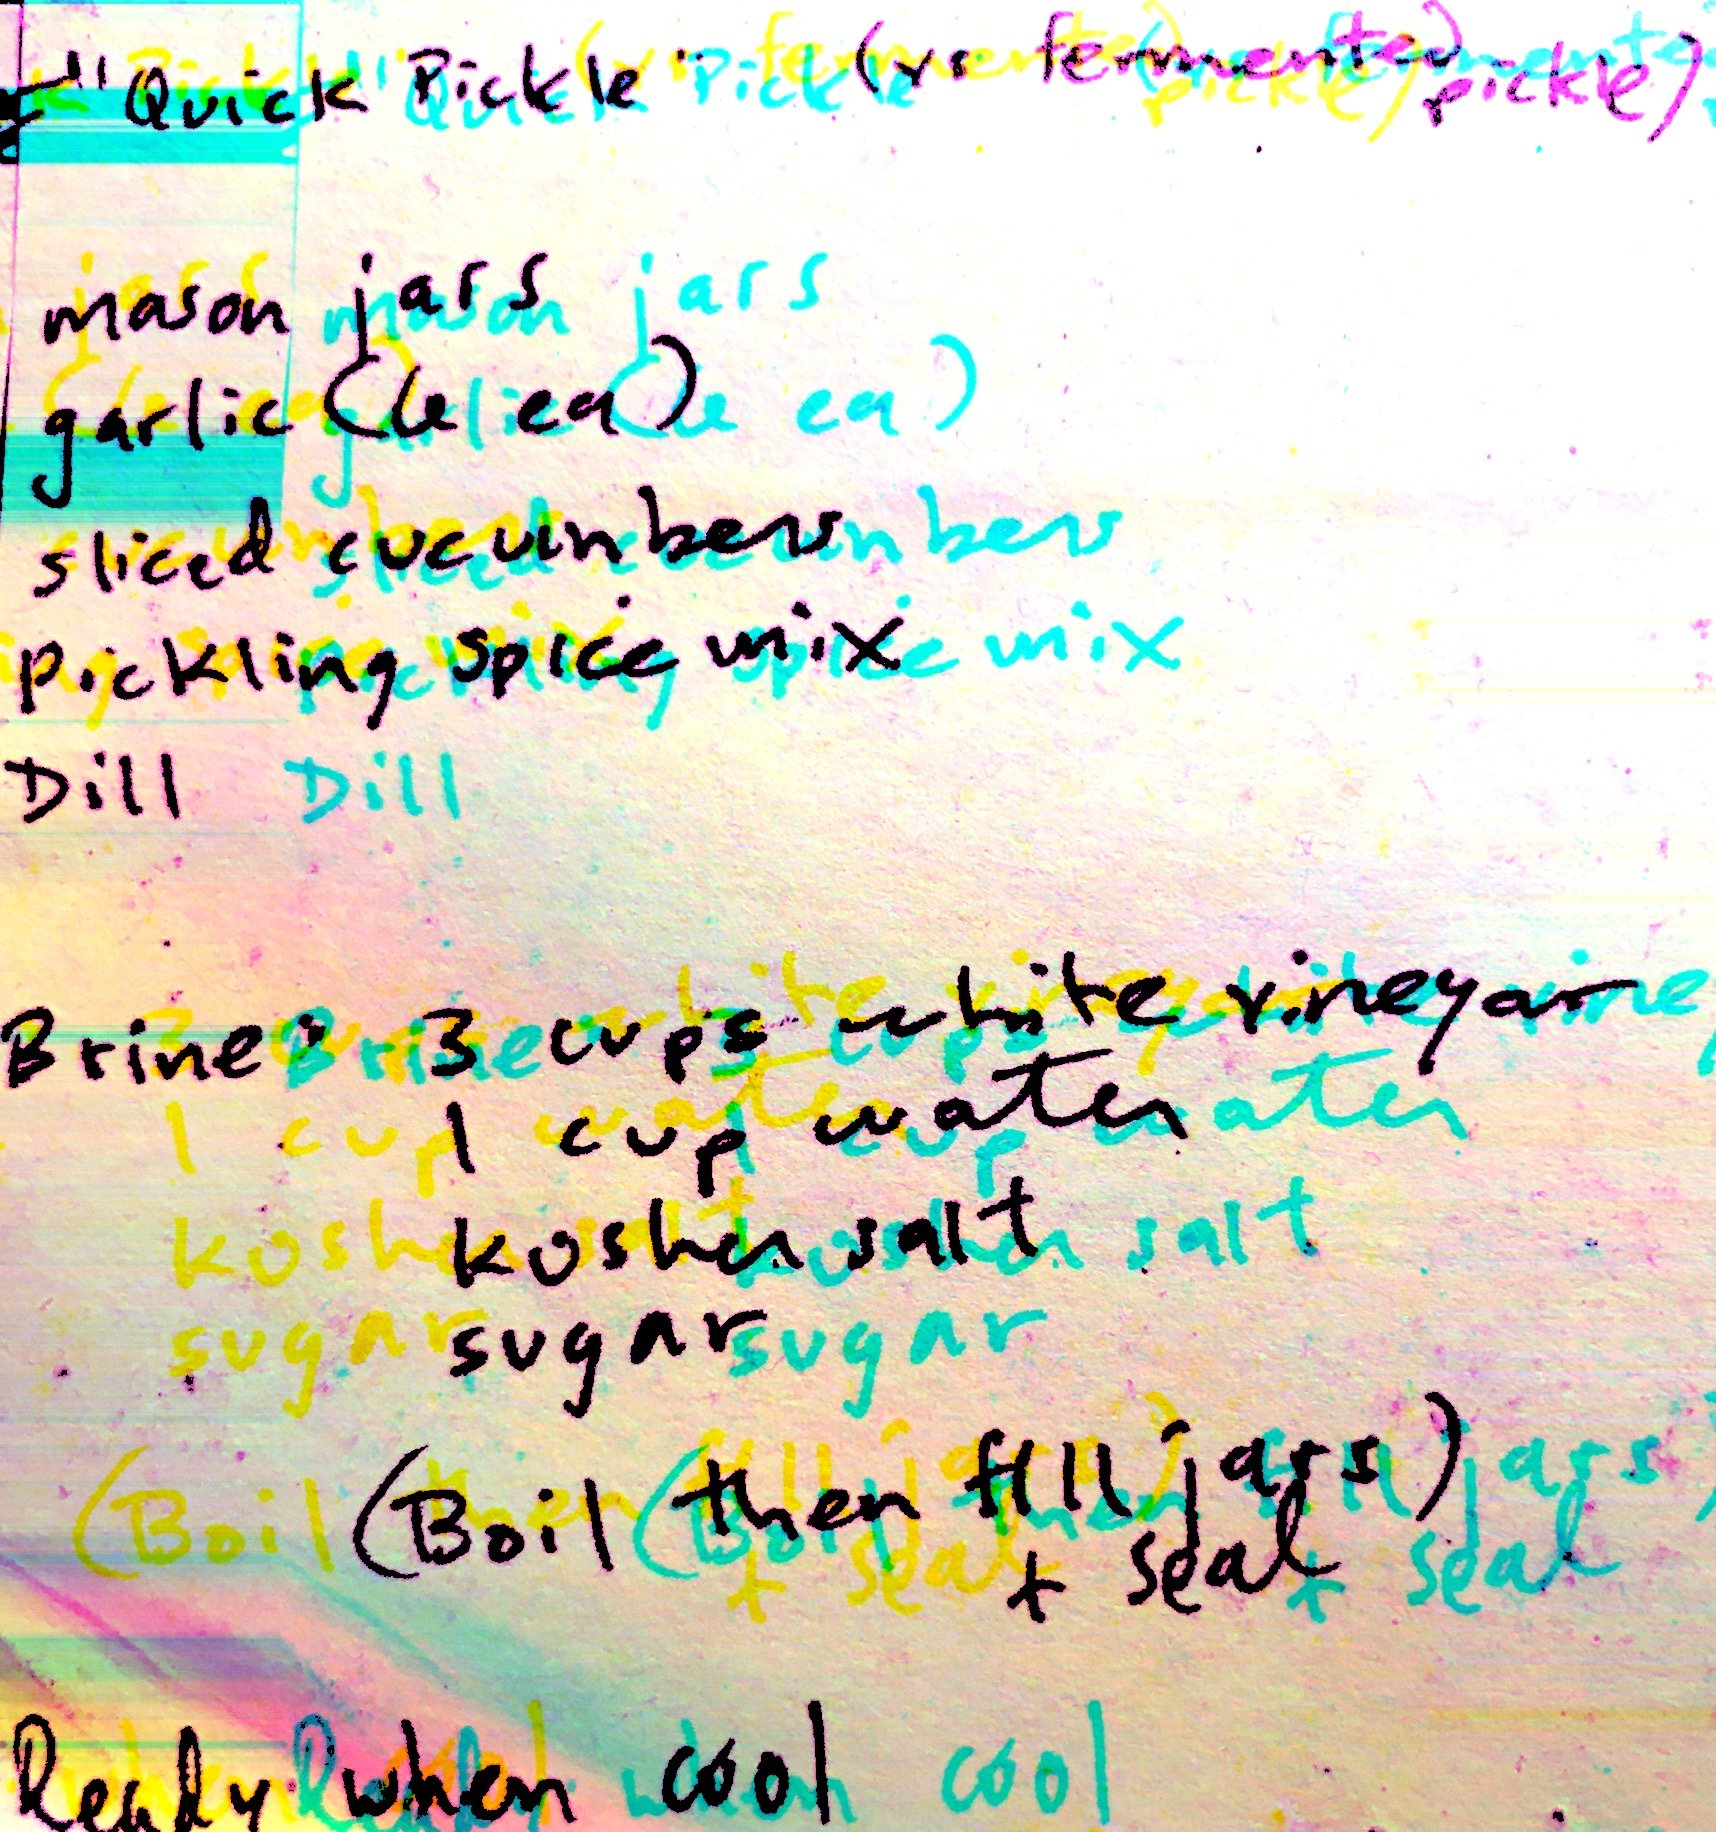 "Quick Pickle" (vs fermented pickle)
mason jars
garlic (le ea)
sliced cucumbers
pickling spice mix
Dill
Brine: 3 cups white vineyar
1 cup water
kosher salt
sugar
(Boil then fill jars)
+ seal
Ready when cool